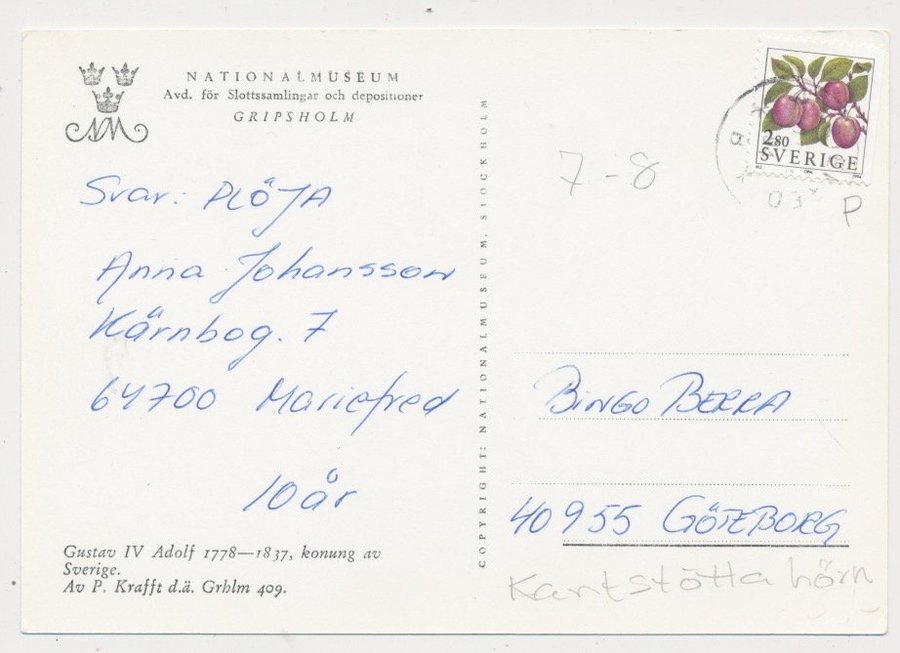 NATIONALMUSEUM
Avd. för Slottssamlingar och depositioner
GRIPSHOLM
Svar: PLÖJA
Anna Johansson
Kärnbog. 7
64700 Mariefred
10 år
Gustav IV Adolf 1778—1837, konung av
Sverige.
Av P. Krafft d.ä. Grhlm 409.
COPYRIGHT: NATIONALMUSEUM, STOCKHOLM
7-8
2.80
SVERIGE
1994
P
BINGO BERRA
40955 GÖTEBORG
Kantstötta hörn